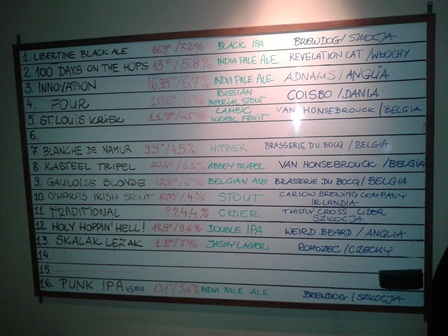 1. LIBERTINE BLACK ALE BLACK IPA BREWDOG / SZKOCJA
2. 100 DAYS ON THE HOPS 13°/5.8% INDIA PALE ALE REVELATION CAT / WŁOCHY
3. INNOVATION 16.75°/6.7% INDIA PALE ALE ADNAMS / ANGLIA
4. FOUR RUSSIAN IMPERIAL STOUT COISBO / DANIA
5. ST. LOUIS KRIEK LAMBIC KRIEK FRUIT VAN HONSEBROUCK / BELGIA
6.
7. BLANCHE DE NAMUR 9.9°/4.5% WITBIER BRASSERIE DU BOCQ / BELGIA
8. KASTEEL TRIPEL ABBEY TRIPEL VAN HONSEBROUCK / BELGIA
9. GAULOISE BLONDE BELGIAN ALE BRASSERIE DU BOCQ / BELGIA
10. O'HARA'S IRISH STOUT STOUT CARLOW BREWING COMPANY IRLANDIA
11. TRADITIONAL ?°/4.4% CIDER THISTLY CROSS CIDER SZKOCJA
12. HOLY HOPPIN' HELL! DOUBLE IPA WEIRD BEARD / ANGLIA
13. SKALAK LEZAK JASNY LAGER ROHOZEC / CZECHY
14.
15.
16. PUNK IPA INDIA PALE ALE BREWDOG / SZKOCJA